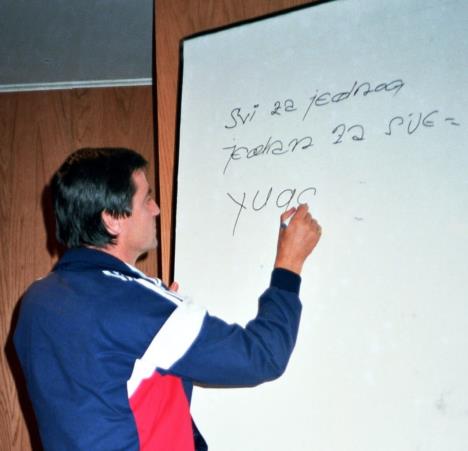 svi za jednog
jedan za sve =
YUGO